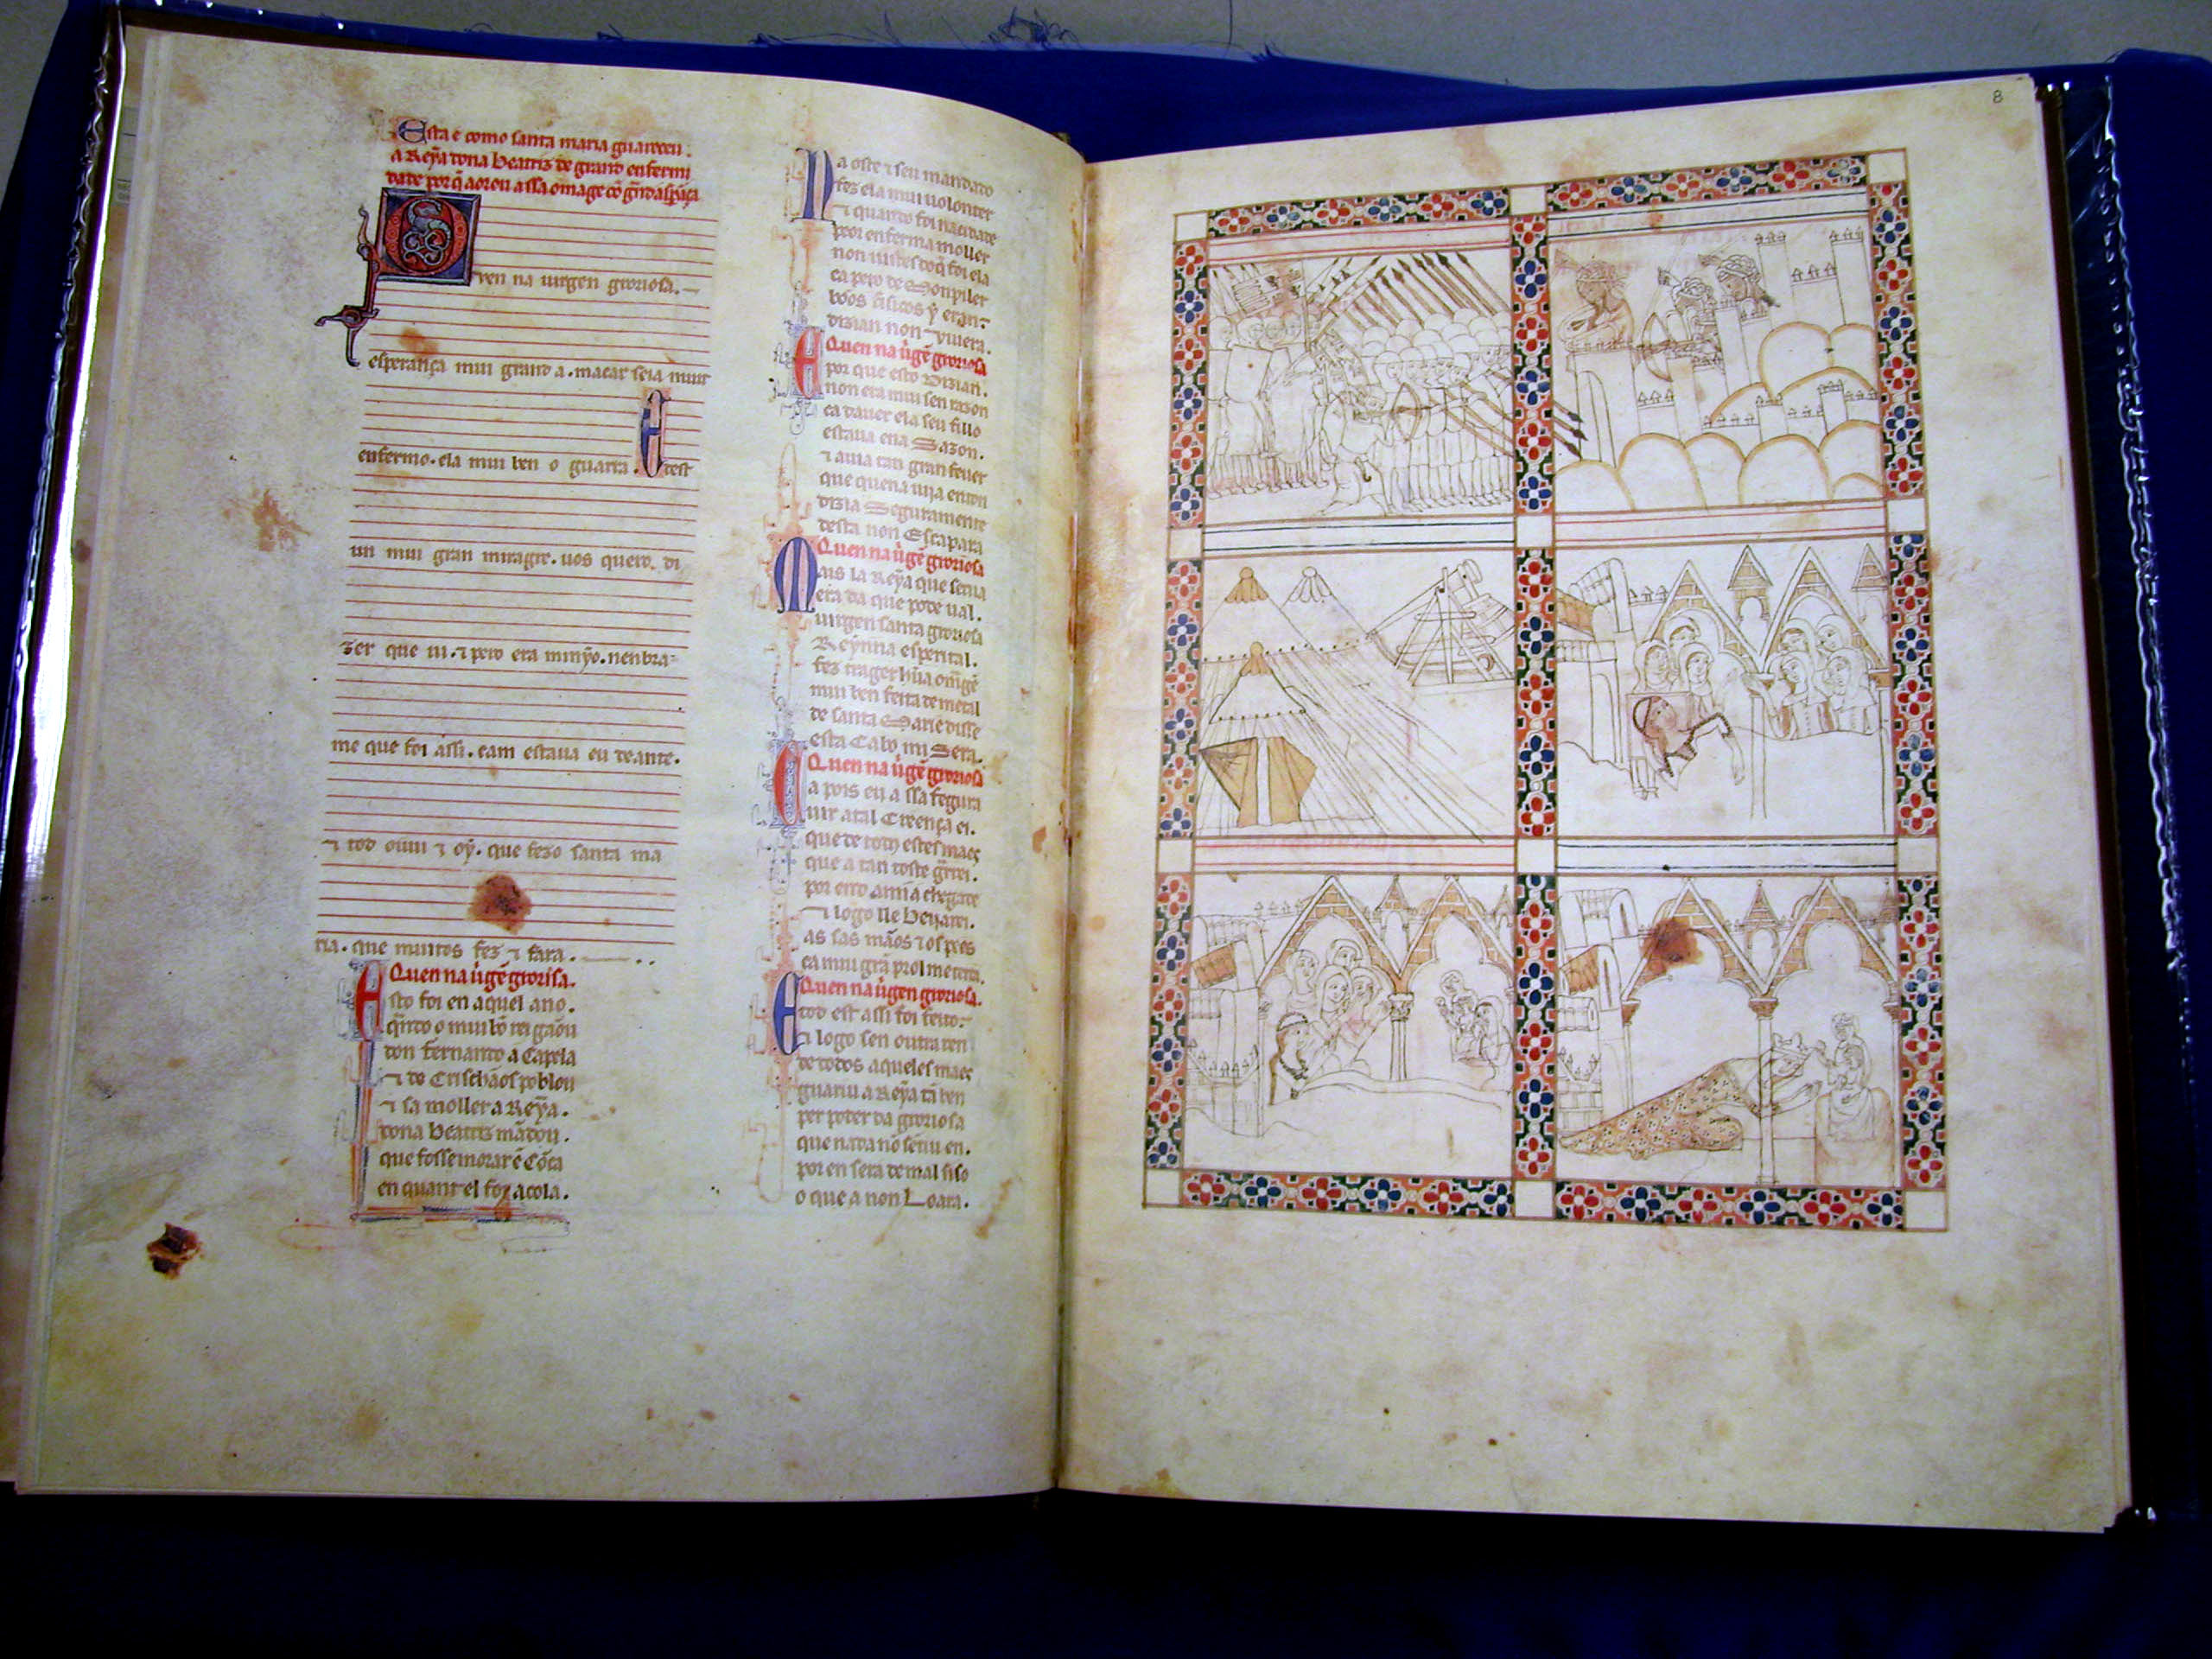 Esta e como santa maria guareceu.
a Reỹa dona beatris de grand enfermi
dade por q̃ aorou a ssa omage cõ
Quen na uirgen groriosa.
esperança mui grand a. macar seia muit
enfermo. ela mui ben o guarra. E dest
un mui gran miragre. uos quero. di
zer que ui. ⁊ pero era minỹo. nenbra
me que foi assi. cam estaua eu deante.
⁊ tod oiuu ⁊ oỹ. que fezo santa ma
ria. que muitos fez ⁊ fara.
Quen na uigẽ groriosa.
Esto foi en aquel ano.
q̃ndo o mui bõ rei gãou
don fernando a Capela
⁊ de Crischãos poblou
⁊ sa moller a Reỹa.
dona beatris mãdou.
que fosse morar ẽ Cõca
en quant el foz acola.
Na oste ⁊ seu mandado
fez ela mui uolonter
⁊ quando foi na cidade
peor enferma moller
non uistes do q̃ foi ela
ca pero de Monpiler
bõos fisicos ỹ eran.
dizian non uiuera.
Quen na uigẽ groriosa
E por que esto dizian.
non era mui sen razon
ca dauer ela seu fillo
estaua ena Sazon.
⁊ auia tan gran feuer
que quena uija enton
dizia Seguramente
desta non Escapara
Quen na uigẽ groriosa
Mais la Reỹa que serua
era da que pode ual.
uirgen santa groriosa
Reynna esperital.
fez trager hũa omagẽ
mui ben feita de metal
de santa Marie disse
esta Cabo mi Sera.
Quen na uigẽ groriosa
Ca pois eu a ssa fegura
uir atal Creença ei.
que de todos estes maes
que a tan toste grrei.
por endo a mi a chegade
⁊ logo lle beijarei.
as sas mãos ⁊ os pees
ca mui grã prol me terra.
Quen na uigen groriosa.
E tod est assi foi feito.
⁊ logo sen outra ren
de todos aqueles maes
guariu a Reỹa tã ben
per poder da groriosa
que nada nõ sentiu en.
por en sera de mal siso
o que a non Loara.
8